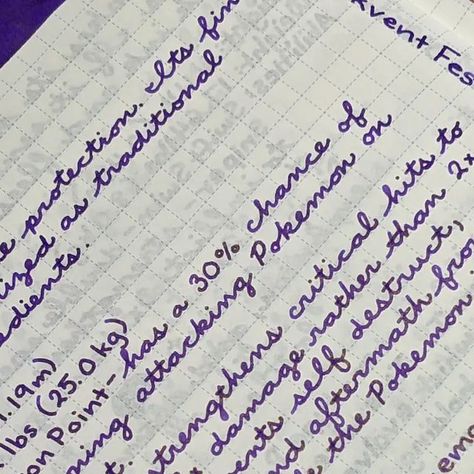 Event Fes
e protection. Its fin
ized as traditional
edients.
.19m)
lbs (25.0kg)
on Point- has a 30% chance of
ning attacking Pokemon on
t.
strengthens critical hits to
damage rather than 2x
ents self destruct,
nd aftermath fro
the Pokemon